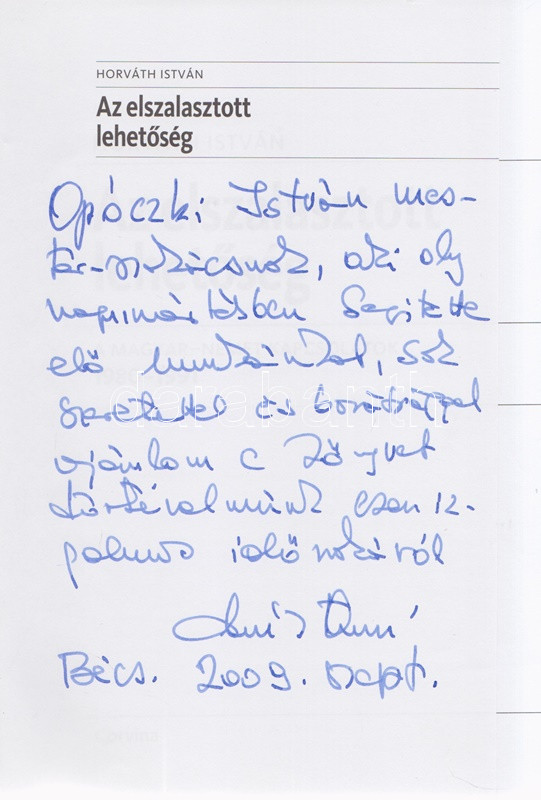 HORVÁTH ISTVÁN
Az elszalasztott
lehetőség
Opóczki István mes-
ter-szakácsnak, aki oly
nagymértékben segítette
elő munkánkat, sok
szeretettel és barátsággal
ajánlom e könyvet
történelmünk ezen iz-
galmas időszakáról
Bécs. 2009. szept.
darabanth